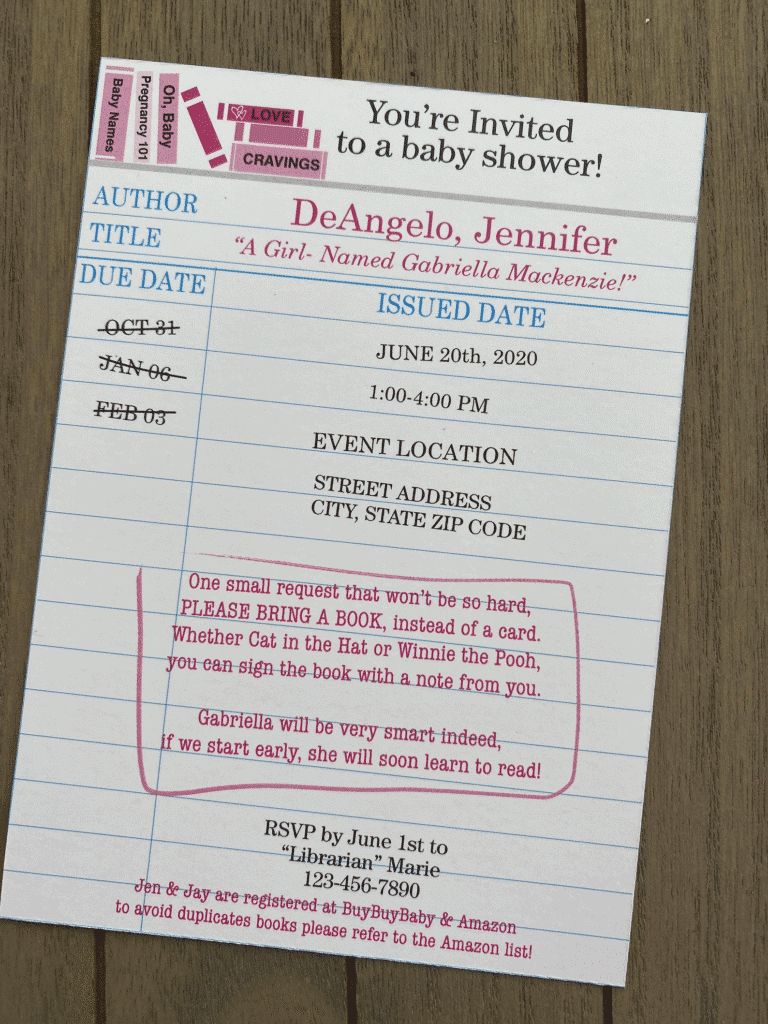 Baby Names
Pregnancy 101
Oh, Baby
LOVE
CRAVINGS
You're Invited
to a baby shower!
AUTHOR
DeAngelo, Jennifer
TITLE
“A Girl- Named Gabriella Mackenzie!”
DUE DATE
ISSUED DATE
OCT 31
JUNE 20th, 2020
JAN 06
1:00-4:00 PM
FEB 03
EVENT LOCATION
STREET ADDRESS
CITY, STATE ZIP CODE
One small request that won't be so hard,
PLEASE BRING A BOOK, instead of a card.
Whether Cat in the Hat or Winnie the Pooh,
you can sign the book with a note from you.
Gabriella will be very smart indeed,
if we start early, she will soon learn to read!
RSVP by June 1st to
“Librarian” Marie
123-456-7890
Jen & Jay are registered at BuyBuyBaby & Amazon
to avoid duplicates books please refer to the Amazon list!